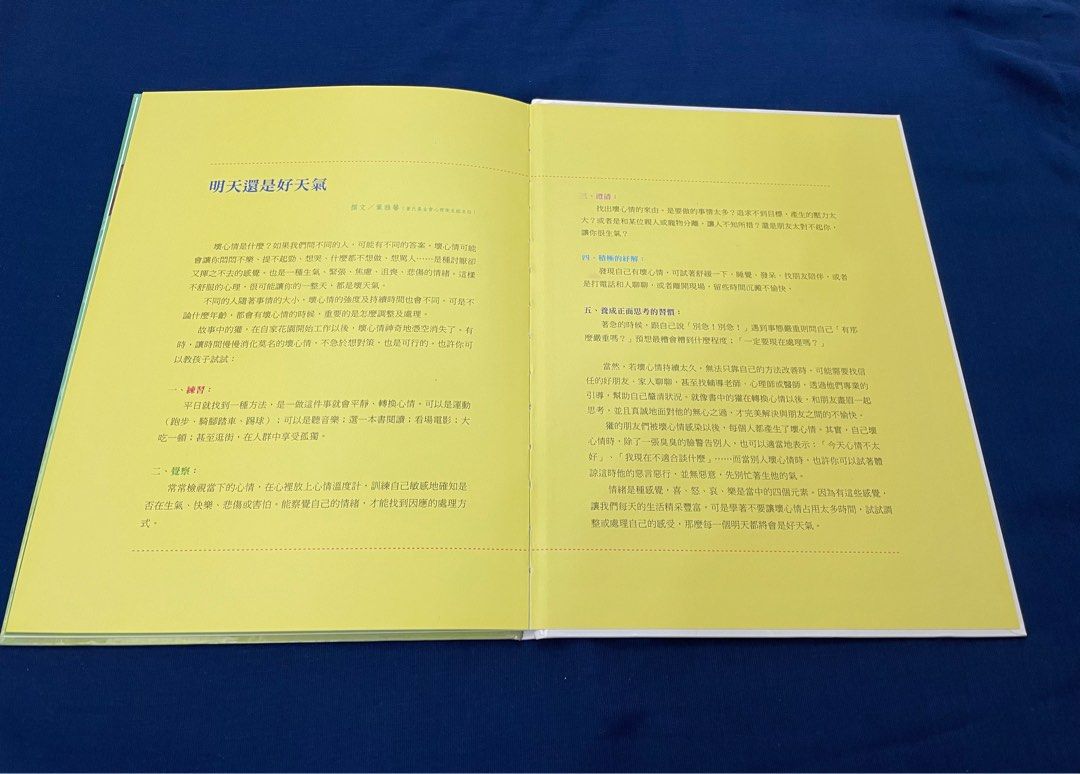 明天還是好天氣
撰文／葉雅馨（董氏基金會心理衛生組主任）
壞心情是什麼？如果我們問不同的人，可能有不同的答案。壞心情可能
會讓你悶悶不樂、提不起勁、想哭、什麼都不想做、想罵人……是種討厭卻
又揮之不去的感覺。也是一種生氣、緊張、焦慮、沮喪、悲傷的情緒。這樣
不舒服的心理，很可能讓你的一整天，都是壞天氣。
不同的人隨著事情的大小，壞心情的強度及持續時間也會不同。可是不
論什麼年齡，都會有壞心情的時候，重要的是怎麼調整及處理。
故事中的獾，在自家花園開始工作以後，壞心情神奇地憑空消失了。有
時，讓時間慢慢消化莫名的壞心情，不急於想對策，也是可行的。也許你可
以教孩子試試：
一、練習：
平日就找到一種方法，是一做這件事就會平靜、轉換心情。可以是運動
（跑步、騎腳踏車、踢球）；可以是聽音樂；選一本書閱讀；看場電影；大
吃一頓；甚至逛街，在人群中享受孤獨。
二、覺察：
常常檢視當下的心情，在心裡放上心情溫度計，訓練自己敏感地確知是
否在生氣、快樂、悲傷或害怕。能察覺自己的情緒，才能找到因應的處理方
式。
三、澄清：
找出壞心情的來由，是要做的事情太多？追求不到目標，產生的壓力太
大？或者是和某位親人或寵物分離，讓人不知所措？還是朋友太對不起你，
讓你很生氣？
四、積極的紓解：
發現自己有壞心情，可試著舒緩一下，睡覺、發呆、找朋友陪伴，或者
是打電話和人聊聊，或者離開現場，留些時間沉澱不愉快。
五、養成正面思考的習慣：
著急的時候，跟自己說「別急！別急！」遇到事態嚴重則問自己「有那
麼嚴重嗎？」預想最糟會糟到什麼程度；「一定要現在處理嗎？」
當然，若壞心情持續太久，無法只靠自己的方法改善時，可能需要找信
任的好朋友、家人聊聊，甚至找輔導老師、心理師或醫師，透過他們專業的
引導，幫助自己釐清狀況。就像書中的獾在轉換心情以後，和朋友畫眉一起
思考，並且真誠地面對他的無心之過，才完美解決與朋友之間的不愉快。
獾的朋友們被壞心情感染以後，每個人都產生了壞心情。其實，自己壞
心情時，除了一張臭臭的臉警告別人，也可以適當地表示：「今天心情不太
好」、「我現在不適合談什麼」……而當別人壞心情時，也許你可以試著體
諒這時他的惡言惡行，並無惡意，先別忙著生他的氣。
情緒是種感覺，喜、怒、哀、樂是當中的四個元素。因為有這些感覺，
讓我們每天的生活精采豐富。可是學著不要讓壞心情占用太多時間，試試調
整或處理自己的感受，那麼每一個明天都將會是好天氣。